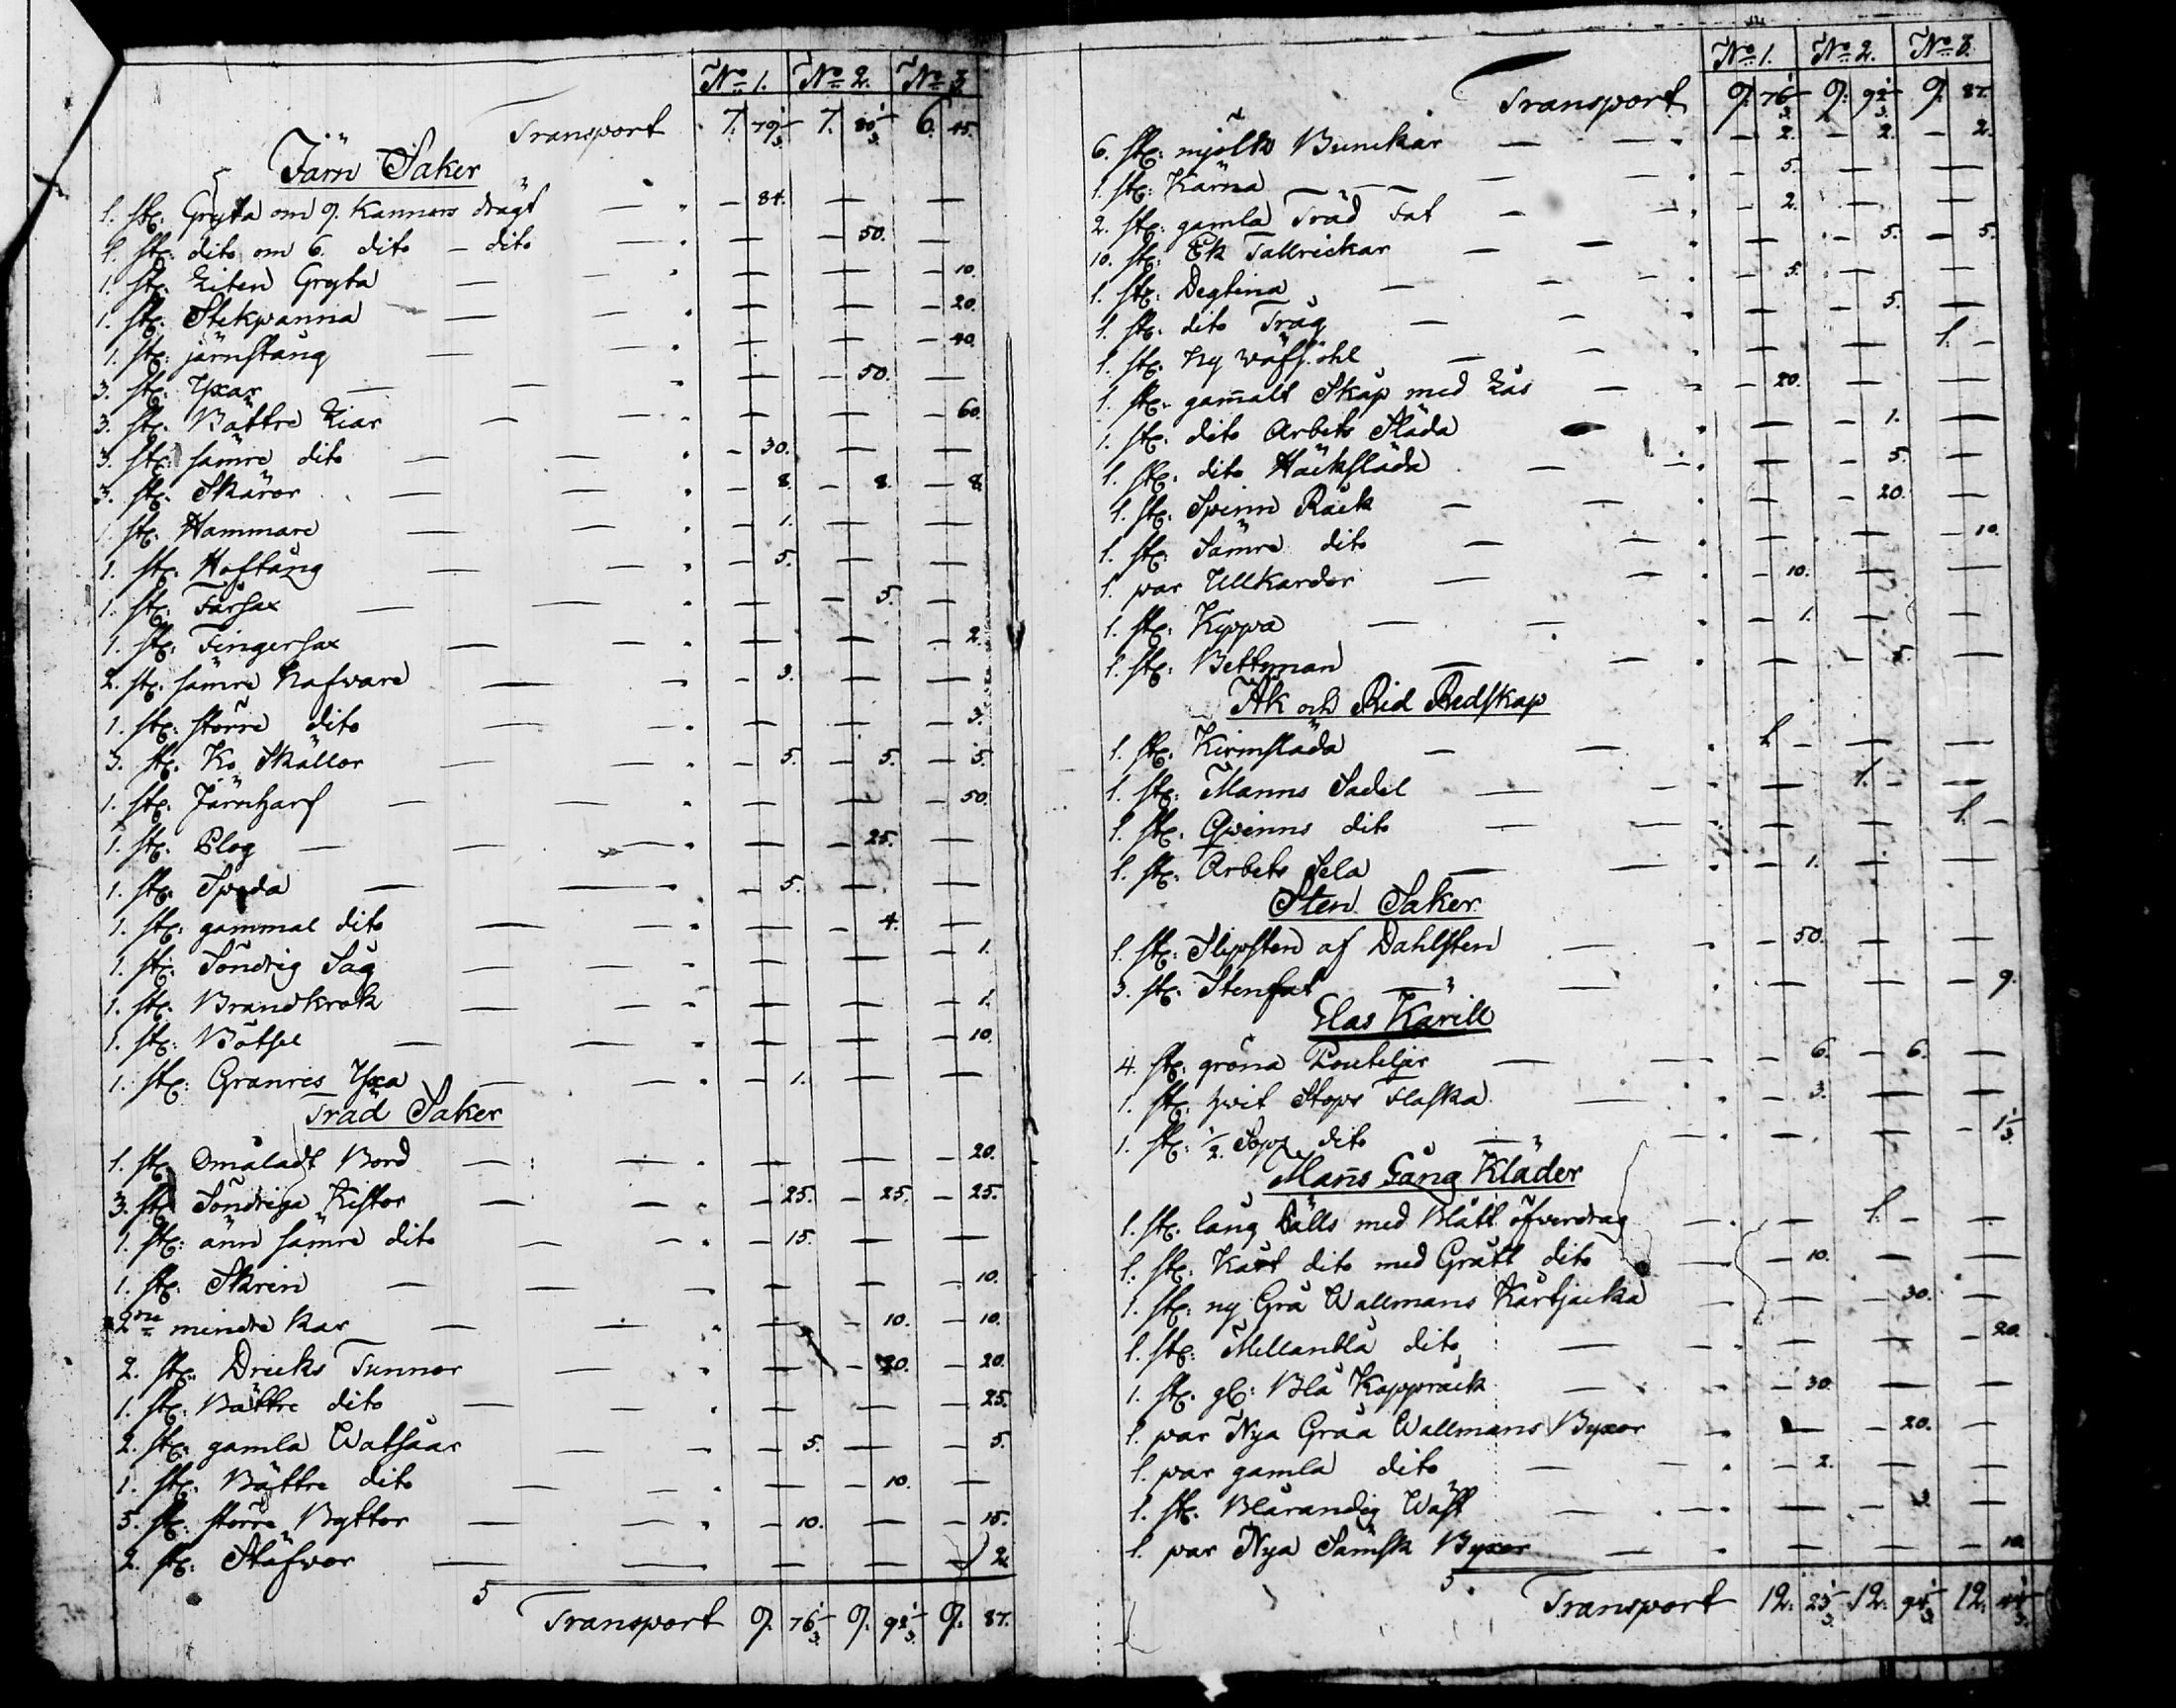 No 1. No 2. No 3.
Transport 7. 79 1/3 7. 80 1/3 6. 45.
Järn Saker
1. st: Gryta om 9. Kannors drägt — 84. — —
1. st: dito om 6. dito — dito — — 50. —
1. st: Liten Gryta — — — 10.
1. st: Stekpanna — — — 20.
1. st: järnstång — — — 40.
3. st: Yxar — — 50. —
3. st: Bättre Liar — — — 60.
3. st: sämre dito — 30. — —
3. st: Skäror — 8. — 8. — 8.
1. st: Hammare — 1. — —
1. st: Hoftång — 5. — —
1. st: Fårsax — — 5. —
1. st: Fingersax — — — 2.
2. st: sämre Nafvare — 3. — —
1. st: större dito — — — 3.
3. st: Ko Skällor — 5. — 5. — 5.
1. st: Järnharf — — — 50.
1. st: Plog — — 25. —
1. st: Spada — 5. — —
1. st: gammal dito — — 4. —
1. st: Söndrig Såg — — — 1.
1. st: Brandkrok — — — 1.
1. st: Bötsel — — — 10.
1. st: Granris Yxa — 1. — —
Träd Saker
1. st: Omåladt Bord — — — 20.
3. st: Söndriga Kistor — 25. — 25. — 25.
1. st: änn sämre dito — 15. — —
1. st: Skrin — — — 10.
2ne mindre Kar — — 10. — 10.
2. st: Dricks Tunnor — — 20. — 20.
1. st: Bättre dito — — — 25.
2. st: gamla Watsåar — 5. — — 5.
1. st: Bättre dito — — 10. —
5. st: större Byttor — 10. — — 15.
2. st: Stäfvor — — — 2.
Transport 9. 76 1/3 9. 92 1/3 9. 87.
No 1. No 2. No 3.
Transport 9. 76 1/3 9. 92 1/3 9. 87.
6. st: mjölk Bunckar — 2. — 2. — 2.
1. st: Kärna — 5. — —
2. st: gamla Träd Fat — 2. — —
10. st: Ek Tallrickar — — 5. — 5.
1. st: Degtina — 5. — —
1. st: dito Tråg — — 5. —
1. st: Ny wäfstohl — — 1. —
1. st: gam̄alt Skåp med Lås — 20. — —
1. st: dito Arbets Släda — — 1. —
1. st: dito Häcksläda — — 5. —
1. st: Spinn Råck — — 20. —
1. st: Sämre dito — — — 10.
1. par Ullkardor — 10. — —
1. st: Kyppa — 1. — —
1. st: Bettsman — — 5. —
Åk och Rid Redskap
1. st: Kirmsläda 1. — — —
1. st: Manns Sadel — 1. — —
1. st: Qvinns dito — — 1. —
1. st: Arbets Sela — 1. — —
Sten Saker
1. st: Slipsten af Dahlsten — 50. — —
3. st: Stenfat — — — 9.
Glas Kärill
4. st: gröna Bouteljer — 6. — 6. —
1. st: hvit Stops Flaska — 3. — —
1. st: 1/2 Stops dito — — — 1 1/3
Man̄s Gång Kläder
1. st: lång Pälls med Blått öfverdrag — 1. — —
1. st: Kort dito med Grått dito — 10. — —
1. st: ny Grå Wallmans Kårtjacka — — 30. —
1. st: Mellanblå dito — — — 20.
1. st: gl: Blå Kappråck — 30. — —
1. par Nya Gråa Wallmans Byxor — — 20. —
1. par gamla dito — 2. — —
1. st: Blårandig Wäst — — 3. —
1. par Nya Sämsk Byxor — — — 10.
Transport 12. 23 1/3 12. 94 1/3 12. 44 1/3